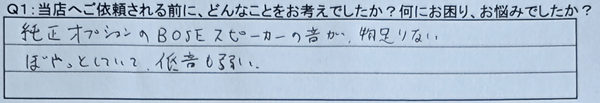 Q1:当店へご依頼される前に、どんなことをお考えでしたか?何にお困り、お悩みでしたか?
純正オプションのBOSEスピーカーの音が、物足りない
ぼやっとしていて、低音も弱い.